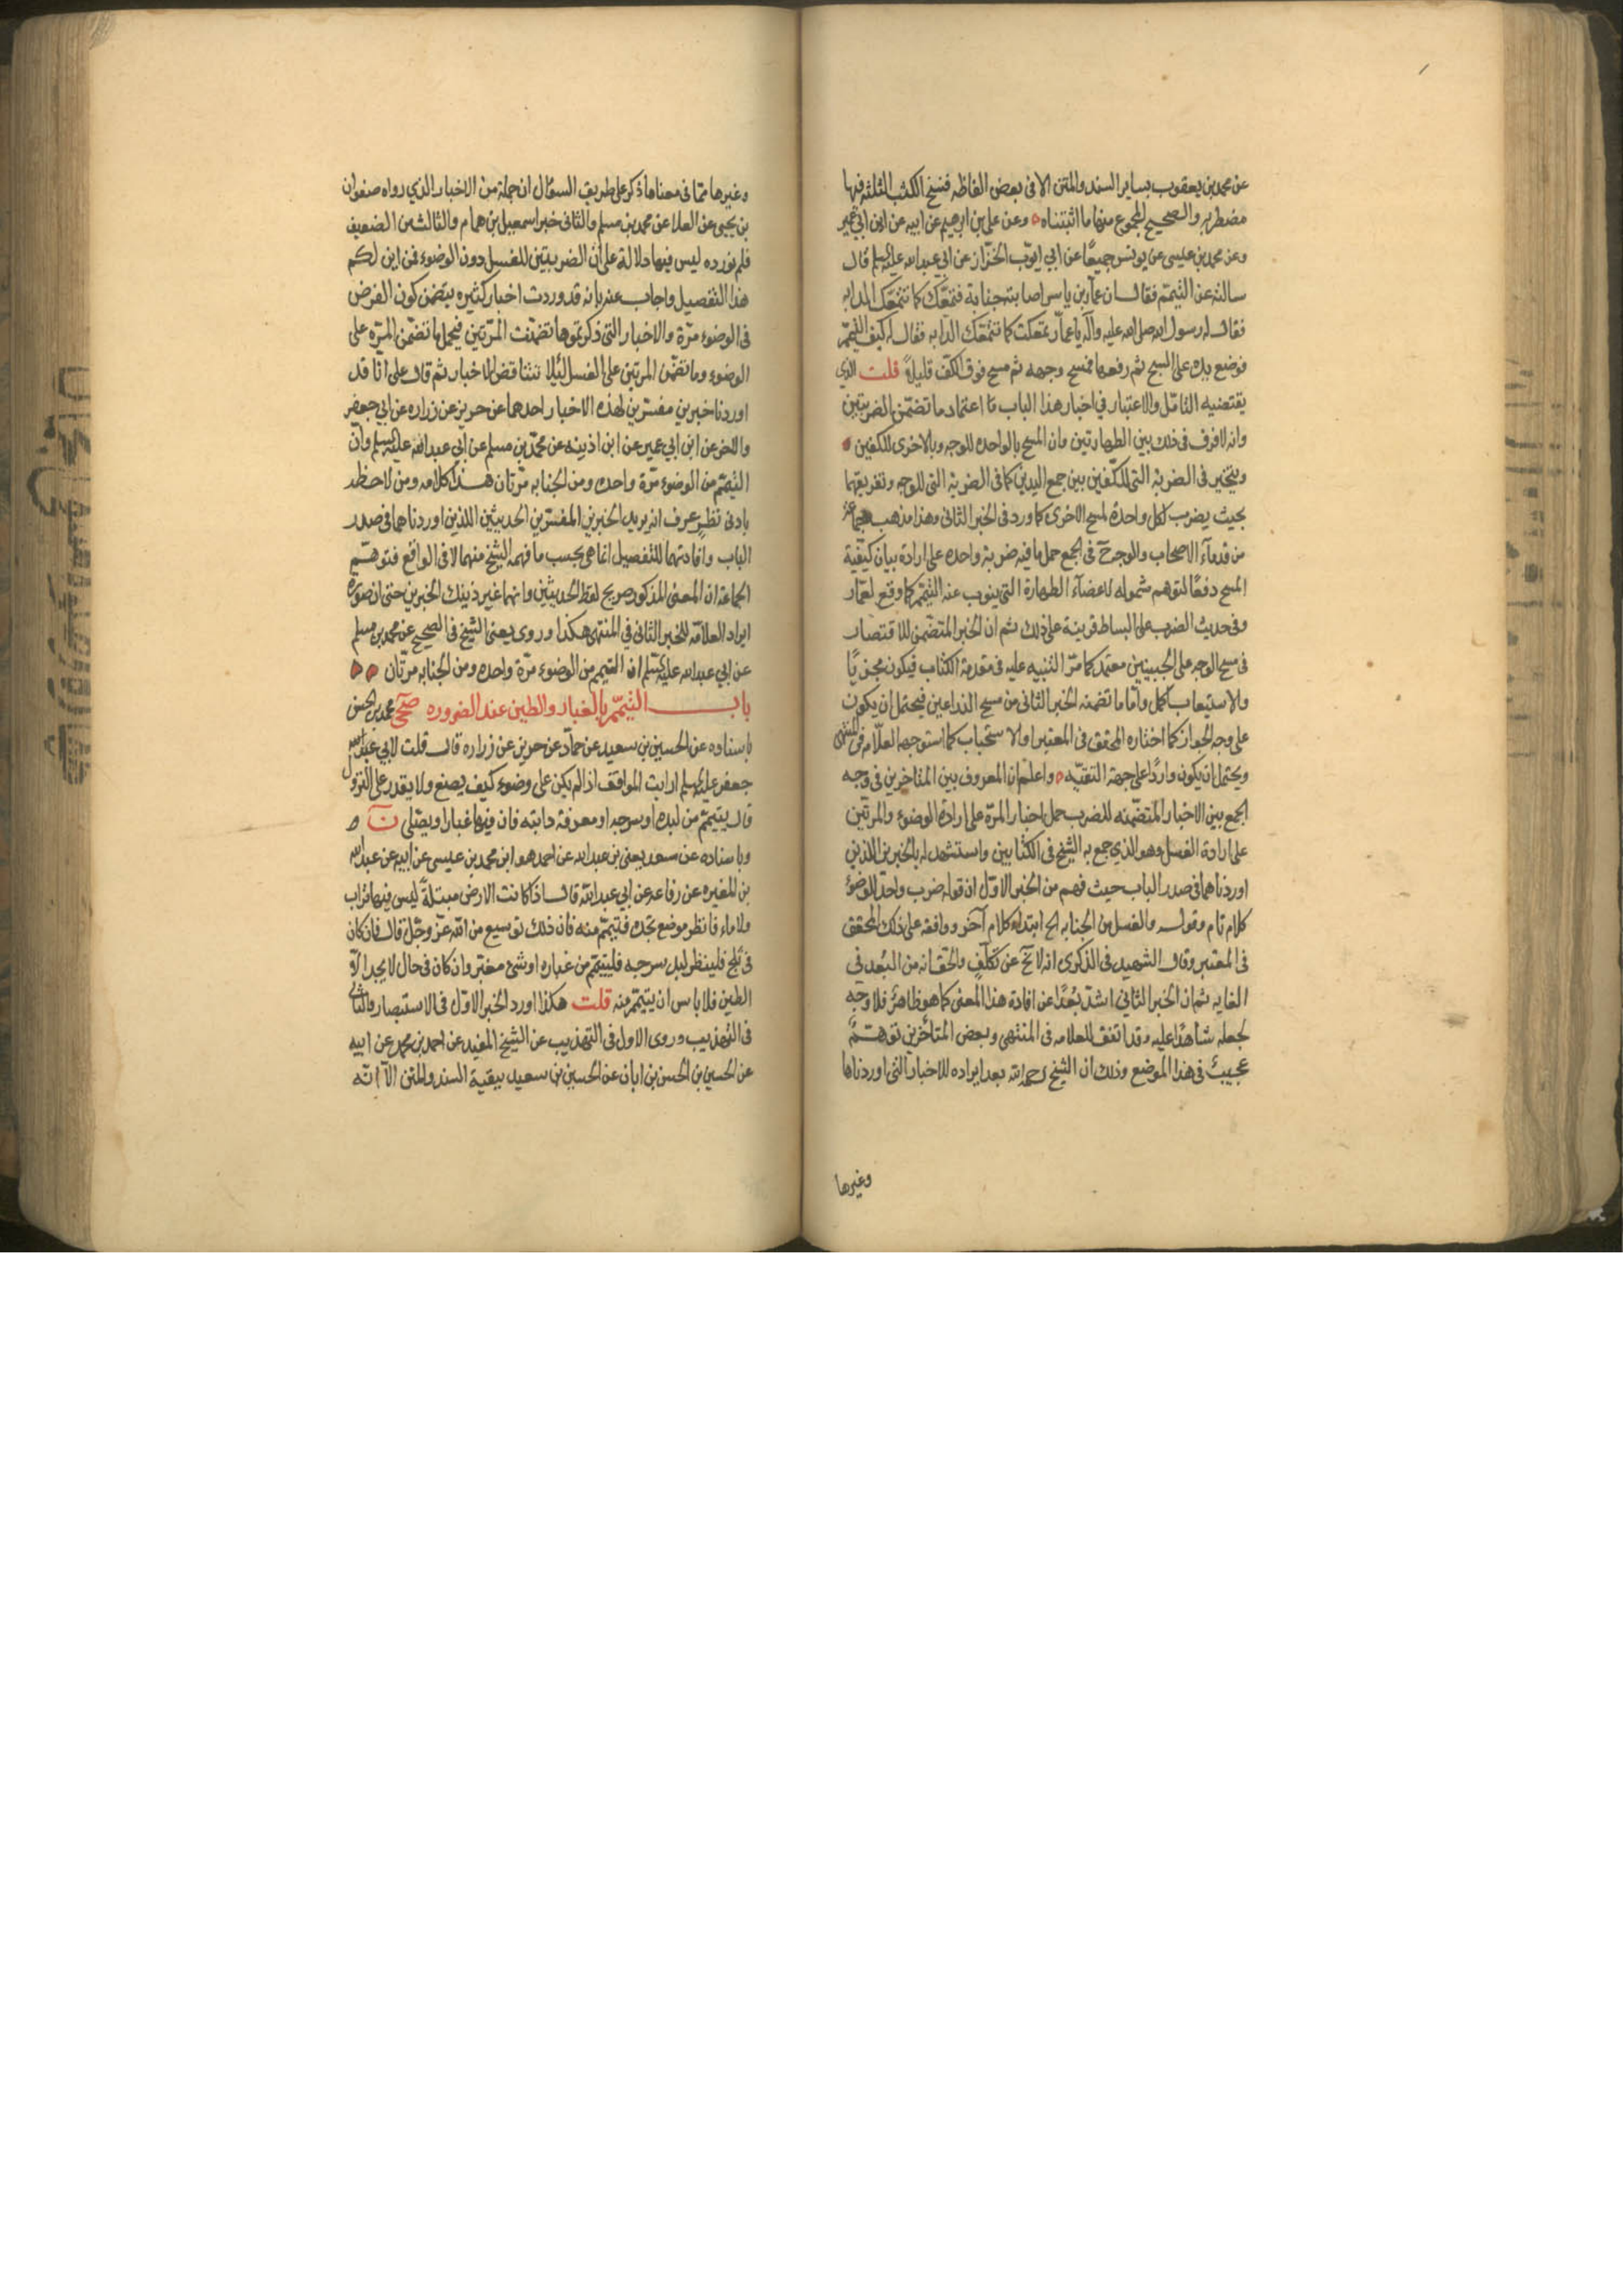 عن محمد بن يعقوب بساير السند والمتن الا في بعض الفاظه فنسخ الكتب الثلثه فيها
مضطربه والصحيح المجموع منها ما اثبتناه وعن علي بن ابرهيم عن ابيه عن ابن ابي عمير
وعن محمد بن عيسى عن يونس جميعًا عن ابي ايوب الخزاز عن ابي عبد الله عليه السلم قال
سالته عن التيمم فقال ان عمار بن ياسر اصابته جنابة فتمعّك كما تتمعّك الدابه
فقال له رسول الله صلى الله عليه وآله يا عمار تمعكت كما تتمعّك الدابه فقال له كيف التيمم
فوضع يده على المسح ثم رفعها فمسح وجهه ثم مسح فوق الكفّ قليلاً قلت الذي
يقتضيه التامّل والاعتبار في اخبار هذا الباب ما اعتماد ما تضمّن الضربتين
وانه لا فرق في ذلك بين الطهارتين وان المسح بالواحده للوجه وبالاخرى للكفين
ويتخير في الضربة التي للكفّين بين جمع اليدين كما في الضربة التي للوجه وتفريقهما
بحيث يضرب لكل واحدة لمسح الاخرى كما ورد في الخبر الثاني وهذا مذهب جماعة
من قدمآء الاصحاب والوجه في الجمع حمل ما فيه ضربة واحده على ارادة بيان كيفية
المسح دفعًا لتوهم شموله لاعضآء الطهارة التي ينوب عنه التيمم كما وقع لعمّار
وفي حديث الضرب على البساط قرينة على ذلك ثم ان الخبر المتضمن للاقتصار
في مسح الوجه على الجبينين معتمد كما مرّ التنبيه عليه في مقدمة الكتاب فيكون مجزيًا
والاستيعاب اكمل وامّا ما تضمنه الخبر الثاني من مسح الذراعين فيحتمل ان يكون
على وجه الجواز كما اختاره المحقق في المعتبر او الاستحباب كما استوجهه العلّامه في المنتهى
ويحتمل ان يكون واردًا على جهة التقيّه واعلم ان المعروف بين المتاخرين في وجه
الجمع بين الاخبار المتضمّنه للضرب حمل اخبار المرّة على ارادة الوضوء والمرتين
على ارادة الغسل وهو الذي جمع به الشيخ في الكتابين واستشهد له بالخبرين الذين
اوردناهما في صدر الباب حيث فهم من الخبر الاوّل ان قوله ضرب واحد للوضوء
كلام تام وقوله والغسل من الجنابه الخ ابتداء كلام آخر ووافقه على ذلك المحقق
في المعتبر وقال الشهيد في الذكرى انه لا يخ عن تكلّف والحق انه من البُعد في
الغايه ثم ان الخبر الثاني اشدّ بُعدًا عن افادة هذا المعنى كما هو ظاهرٌ فلا وجه
لجعله شاهدًا عليه وقد اتفق للعلامه في المنتهى وبعض المتأخرين توهّمٌ
عجيبٌ في هذا الموضع وذلك ان الشيخ رحمه الله بعد ايراده للاخبار التي اوردناها
وغيرها
وغيرها ممّا في معناها ذكر على طريق السؤال ان جملة من الاخبار الذي رواه صفوان
بن يحيى عن العلا عن محمد بن مسلم والثاني خبر اسمعيل بن همام والثالث من الضعيف
فلم نورده ليس فيها دلالة على أن الضربتين للغسل دون الوضوء فمن اين لكم
هذا التفصيل واجاب عنه بانه قد وردت اخبار كثيره يتضمن كون الفرض
في الوضوء مرّة والاخبار التي ذكرتموها تضمّنت المرّتين فيحمل ما تضمّن المرّه على
الوضوء وما تضمّن المرتين على الغسل لئلا تتناقض الاخبار ثم قال على انّا قد
اوردنا خبرين مفسّرين لهذه الاخبار احدهما عن حريز عن زراره عن ابي جعفر
والاخر عن ابن ابي عمير عن ابن اذينه عن محمّد بن مسلم عن أبي عبد الله عليه السلم وأنّ
التيمم من الوضوء مرّة واحده ومن الجنابه مرّتان هذا كلامه ومن لاحظه
بادنى نظرٍ عرف انه يريد الخبرين المفسّرين الحديثين اللذين اوردناهما في صدر
الباب وافادتهما للتفصيل انما هي بحسب ما فهمه الشيخ منهما لا في الواقع فتوهّم
الجماعة ان المعنى المذكور صريح لفظ الحديثين وانهما غير ذينك الخبرين حتى ان صورة
ايراد العلامّه للخبر الثاني في المنتهى هكذا وروى يعني الشيخ في الصحيح عن محمد بن مسلم
عن ابي عبد الله عليه السلم ان التيمم من الوضوء مرّة واحده ومن الجنابه مرّتان
باب التيمّم بالغبار والطين عند الضروره صحي محمد بن الحسن
باسناده عن الحسين بن سعيد عن حمّاد عن حريز عن زراره قال قلت لابي
جعفر عليه السلم ارايت المواقف اذا لم يكن على وضوء كيف يصنع ولا يقدر على النزول
قال يتيمّم من لبده او سرجه او معرفة دابته فان فيها غبارا ويصلّي ن
وباسناده عن سعد يعني بن عبد الله عن احمد هو ابن محمد بن عيسى عن ابيه عن عبد الله
بن المغيره عن رفاعه عن ابي عبد الله قال اذا كانت الارض مبتلةً ليس فيها تراب
ولا ماء فانظر موضع تجده فتيمّم منه فان ذلك توسيع من الله عزّ وجلّ قال فان كان
في ثلج فلينظر لبد سرجه فليتيمّم من غباره او شئ مغبر وان كان في حال لا يجد الّا
الطين فلا باس ان يتيمّم منه قلت هكذا اورد الخبر الاوّل في الاستبصار والثاني
في التهذيب وروى الاول في التهذيب عن الشيخ المفيد عن احمد بن محمد عن ابيه
عن الحسين بن الحسن بن ابان عن الحسين بن سعيد ببقية السند والمتن الّا انّه